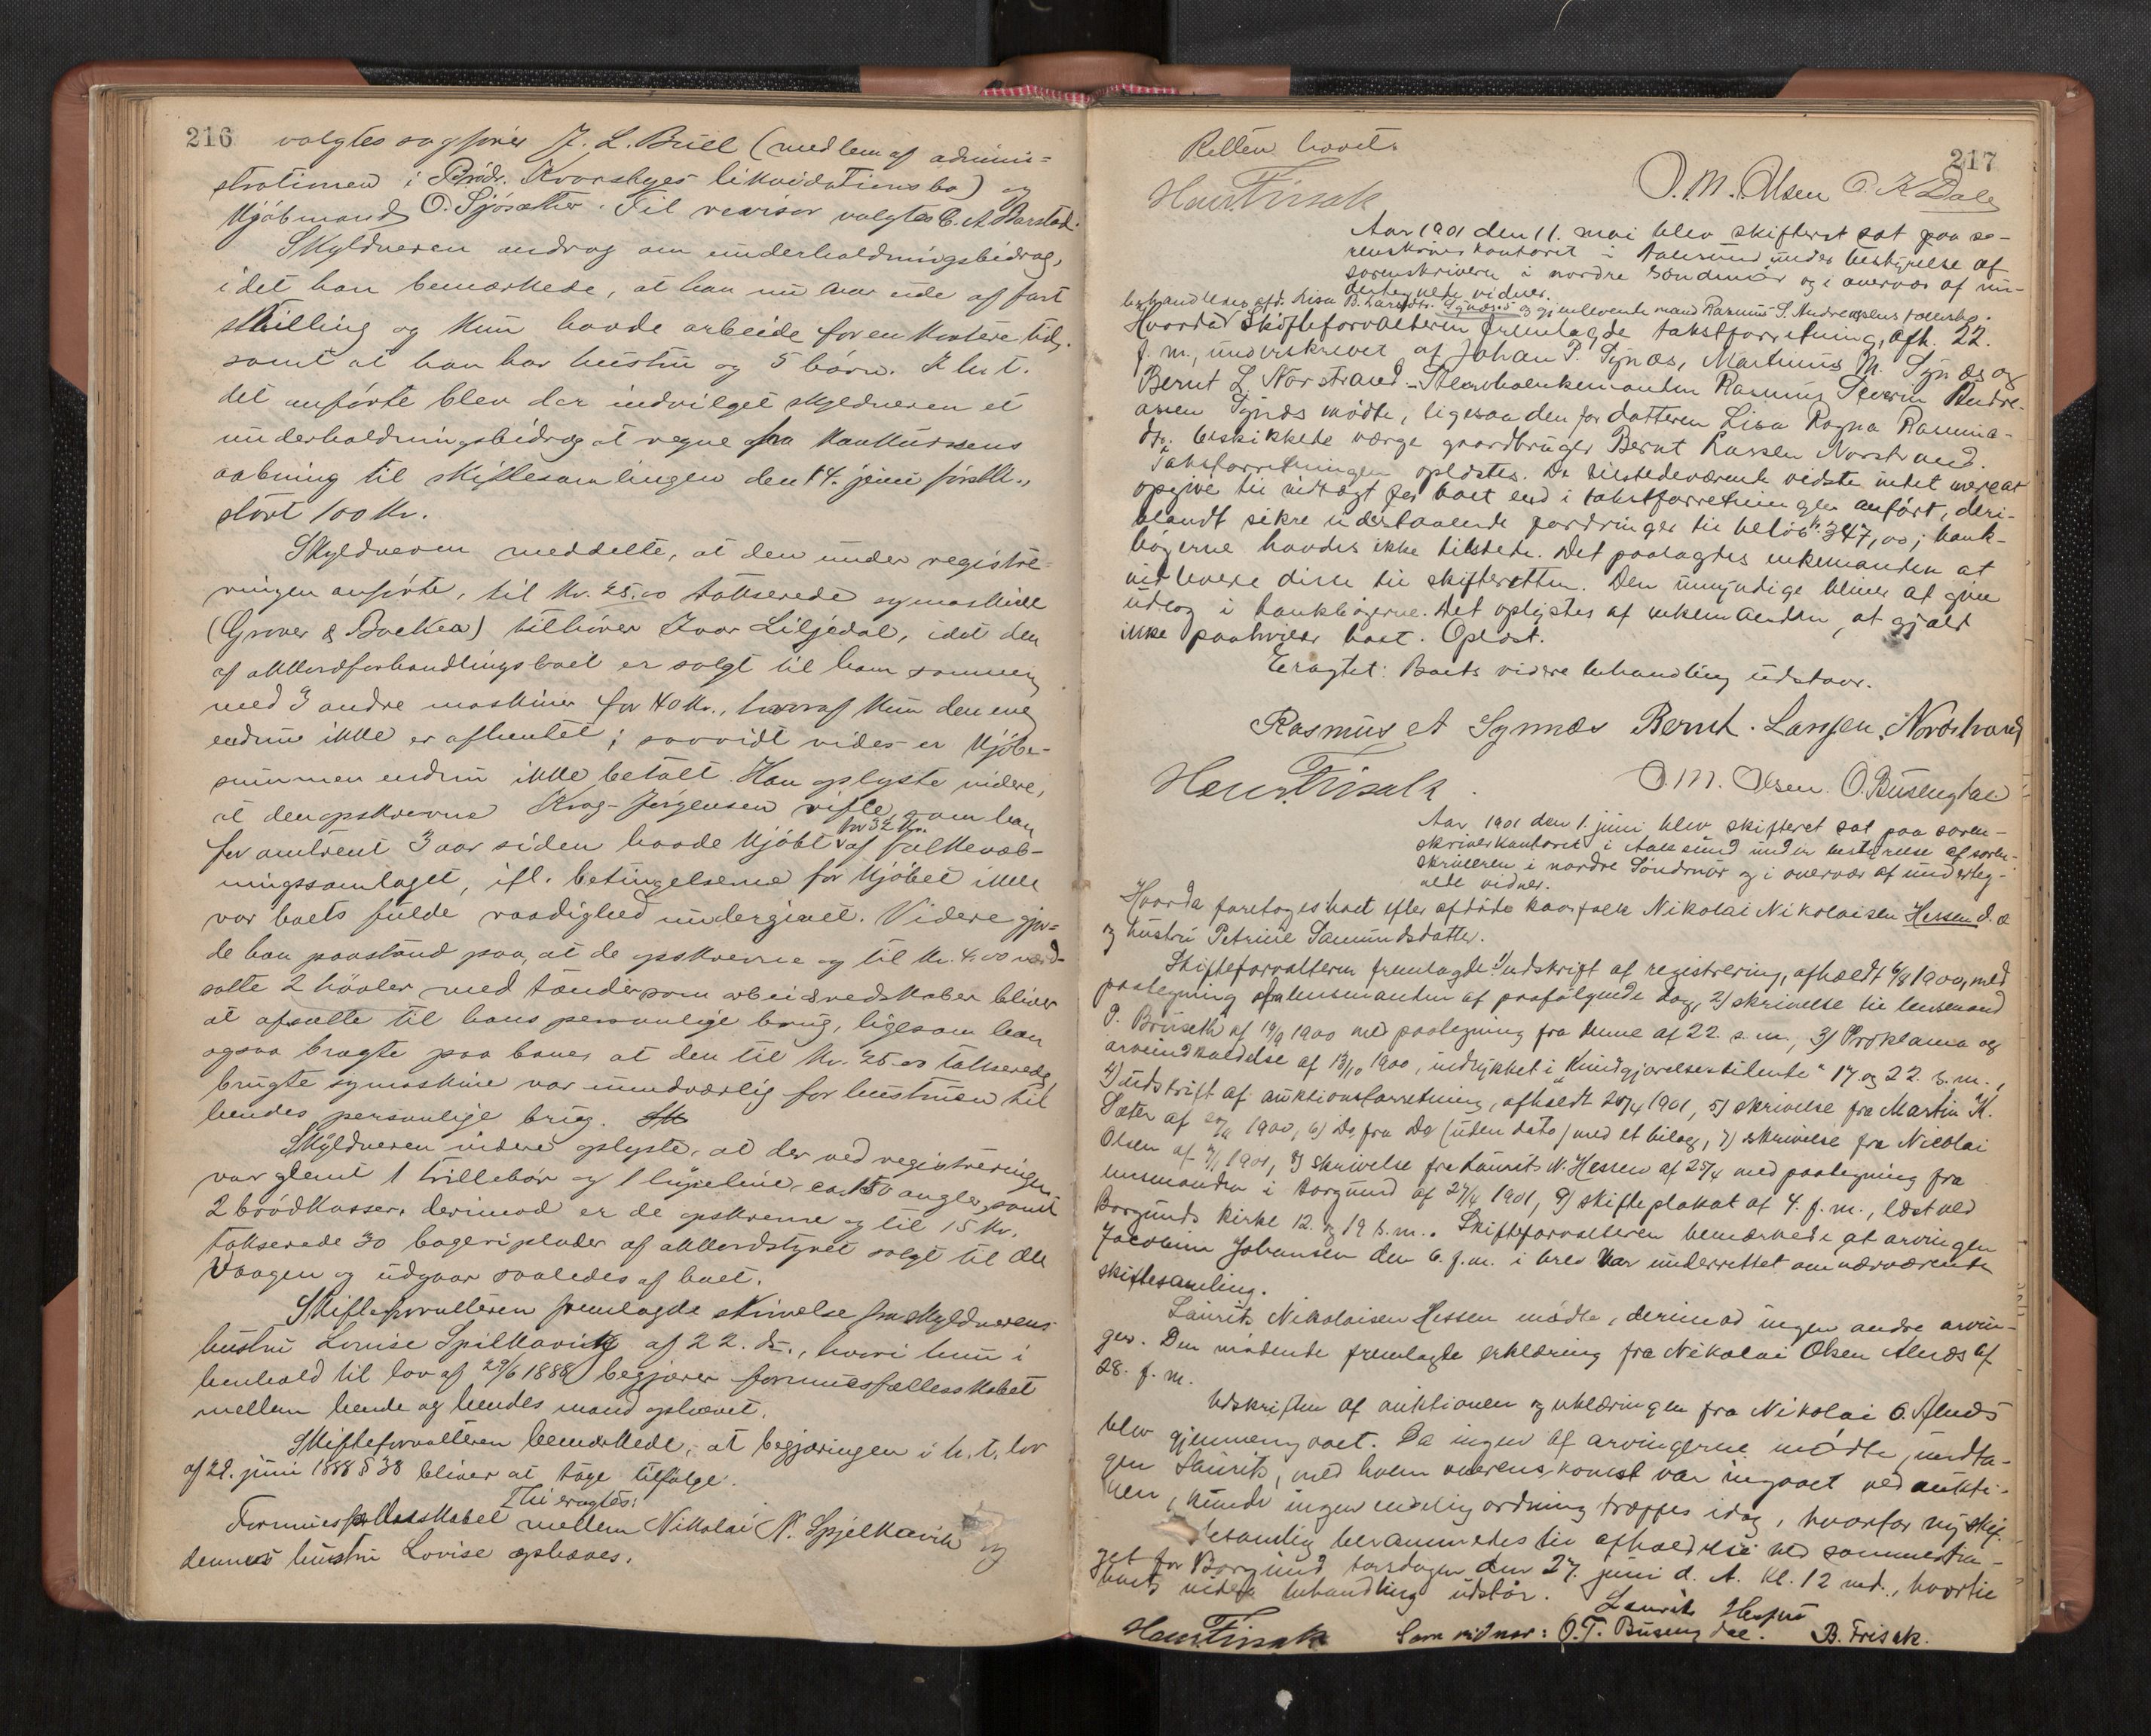 216
valgtes sagfører J. L. Buill (medlem af admini-
strationen i Brødr. Kvarsbyes likvidationsbo) og
kjøbmand O. Sjøsæther. Til revisor valgtes C. A. Barstad.
Skyldneren androg om underholdningsbidrag,
idet han bemærkede, at han nu var ude af fast
stilling og kun havde arbeide for en kortere tid,
samt at han har hustru og 5 børn. I h. t.
det anførte blev der indvilget skyldneren et
underholdningsbidrag at regne fra konkursens
aabning til skiftesamlingen den 14. juni førstk.,
stort 100 Kr.
Skyldneren meddelte, at den under registre-
ringen anførte, til Kr. 25.00 takserede symaskine
(Grover & Backer) tilhører Ivar Liljedal, idet den
af akkordforhandlingsboet er solgt til ham sammen
med 3 andre maskiner for 40 Kr., hvoraf kun den ene
endnu ikke er afhentet; saavidt vides er kjøbe-
summen endnu ikke betalt. Han oplyste videre,
at den opskrevne Krag-Jørgensen rifle, som han
for omtrent 3 aar siden havde kjøbt for 32 Kr. af folkevæb-
ningssamlaget, ifl. betingelserne for kjøbet ikke
var boets fulde raadighed undergivet. Videre gjor-
de han paastand paa, at de opskrevne og til Kr. 4.00 værd-
satte 2 høvler med tænder som arbeidsredskaber bliver
at afsætte til hans personlige brug, ligesom han
ogsaa bragte paa bane, at den til Kr. 25.00 takserede,
brugte symaskine var uundværlig for hustruen til
hendes personlige brug.
Skyldneren videre oplyste, at der ved registreringen
var glemt 1 trillebør og 1 line, ca. 150 angler, samt
2 brødkasser, derimod er de opskrevne og til 15 Kr.
takserede 30 bageriplader af akkordstyret solgt til
Vaagen og udgaar saaledes af boet.
Skifteforvalteren fremlagde skrivelse fra skyldnerens
hustru Lovise Spilkavik af 22. ds., hvori hun i
henhold til lov af 29/6 1888 begjærer formuesfællesskabet
mellem hende og hendes mand ophævet.
Skifteforvalteren bemærkede, at begjæringen i h. t. lov
af 29. juni 1888 § 38 bliver at tage tilfølge.
Thi eragtes:
Formuesfællesskabet mellem Nikolai N. Spjelkavik og
dennes hustru Lovise ophæves.
217
Retten hævet.
Hans Frisak O. M. Olsen O. K. Dale
Aar 1901 den 11. mai blev skifteret sat paa so-
renskriverkontoret i Aalesund under bestyrelse af
sorenskriveren i nordre Søndmør og i overvær af un-
dertegnede vidner.
behandledes afd. Lisa B. Larsdtr. Synæs's og gjenlevende mand Rasmus S. Andreassens fællesbo.
Hvorda Skifteforvalteren fremlagde takstforretning, afh. 22.
f. m., underskrevet af Johan P. Synæs, Martinus M. Synæs og
Bernt L. Norstrand. Enkemanden Rasmus Severin Andre-
assen Synæs mødte, ligesaa den for datteren Lisa Ragna Rasmus-
dtr. beskikkede værge gaardbruger Bernt Larsen Norstrand.
Takstforretningen oplæstes. De tilstedeværende vidste intet mere at
opgive til indtægt for boet end i takstforretningen anført, deri-
blandt sikre udestaaende fordringer til beløb kr. 347,00; bank-
bøgerne havdes ikke tilstede. Det paalagdes enkemanden at
indlevere disse til skifteretten. Den umyndige bliver at give
udlæg i bankbøgerne. Det oplystes af enkemanden, at gjæld
ikke paahviler boet. Oplæst.
Eragtet: Boets videre behandling udstaar.
Rasmus A Synnæs Bernt. Larsen. Nordstrand
Hans Frisak. O. M. Olsen O. Busengdal
Aar 1901 den 1. juni blev skifteret sat paa soren-
skriverkontoret i Aalesund under bestyrelse af soren-
skriveren i nordre Søndmør og i overvær af underteg-
nede vidner.
Hvorda foretoges boet efter afdøde kaarfolk Nikolai Nikolaisen Hessen d. æ
og hustru Petrine Samundsdatter.
Skifteforvalteren fremlagde 1) udskrift af registrering, afholdt 6/9 1900, med
paategning fra lensmanden af paafølgende dag, 2) skrivelse til lensmand
P. Bruseth af 19/9 1900 med paategning fra denne af 22. s. m., 3) Proklama og
arveindkaldelse af 13/10 1900, indrykket i "Kundgjørelsestidende" 17. og 22. s. m.,
4) udskrift af auktionsforretning, afholdt 20/4 1901, 5) skrivelse fra Martin K.
Sæter af 27/11 1900, 6) Do. fra Do (uden dato) med et bilag, 7) skrivelse fra Nicolai
Olsen af 7/1 1901, 8) skrivelse fra Laurits N. Hessen af 25/4 med paategning fra
lensmanden i Borgund af 27/4 1901, 9) skifteplakat af 4. f. m., læst ved
Borgunds kirke 12. og 19 s. m.. Skifteforvalteren bemærkede, at arvingen
Jacobine Johansen den 6. f. m. i brev var underrettet om nærværende
skiftesamling.
Laurits Nikolaisen Hessen mødte, derimod ingen andre arvin-
ger. Den mødende fremlagte erklæring fra Nikolai Olsen Alnæs af
28. f. m.
Udskriften af auktionen og erklæringen fra Nikolai O. Alnæs
blev gjennemgaaet. Da ingen af arvingerne mødte, undta-
gen Laurits, med hvem overenskomst var ingaaet ved aukti-
nen, kunde ingen endelig ordning træffes idag, hvorfor ny skif-
tesamling berammedes til afholdelse ved sommertin-
get for Borgund torsdagen den 27. juni d. A. kl. 12 md., hvortil
boets videre behandling udstår. Laurits Hessen
Hans Frisak Som vidner: O. T. Busengdal. B. Frisak.